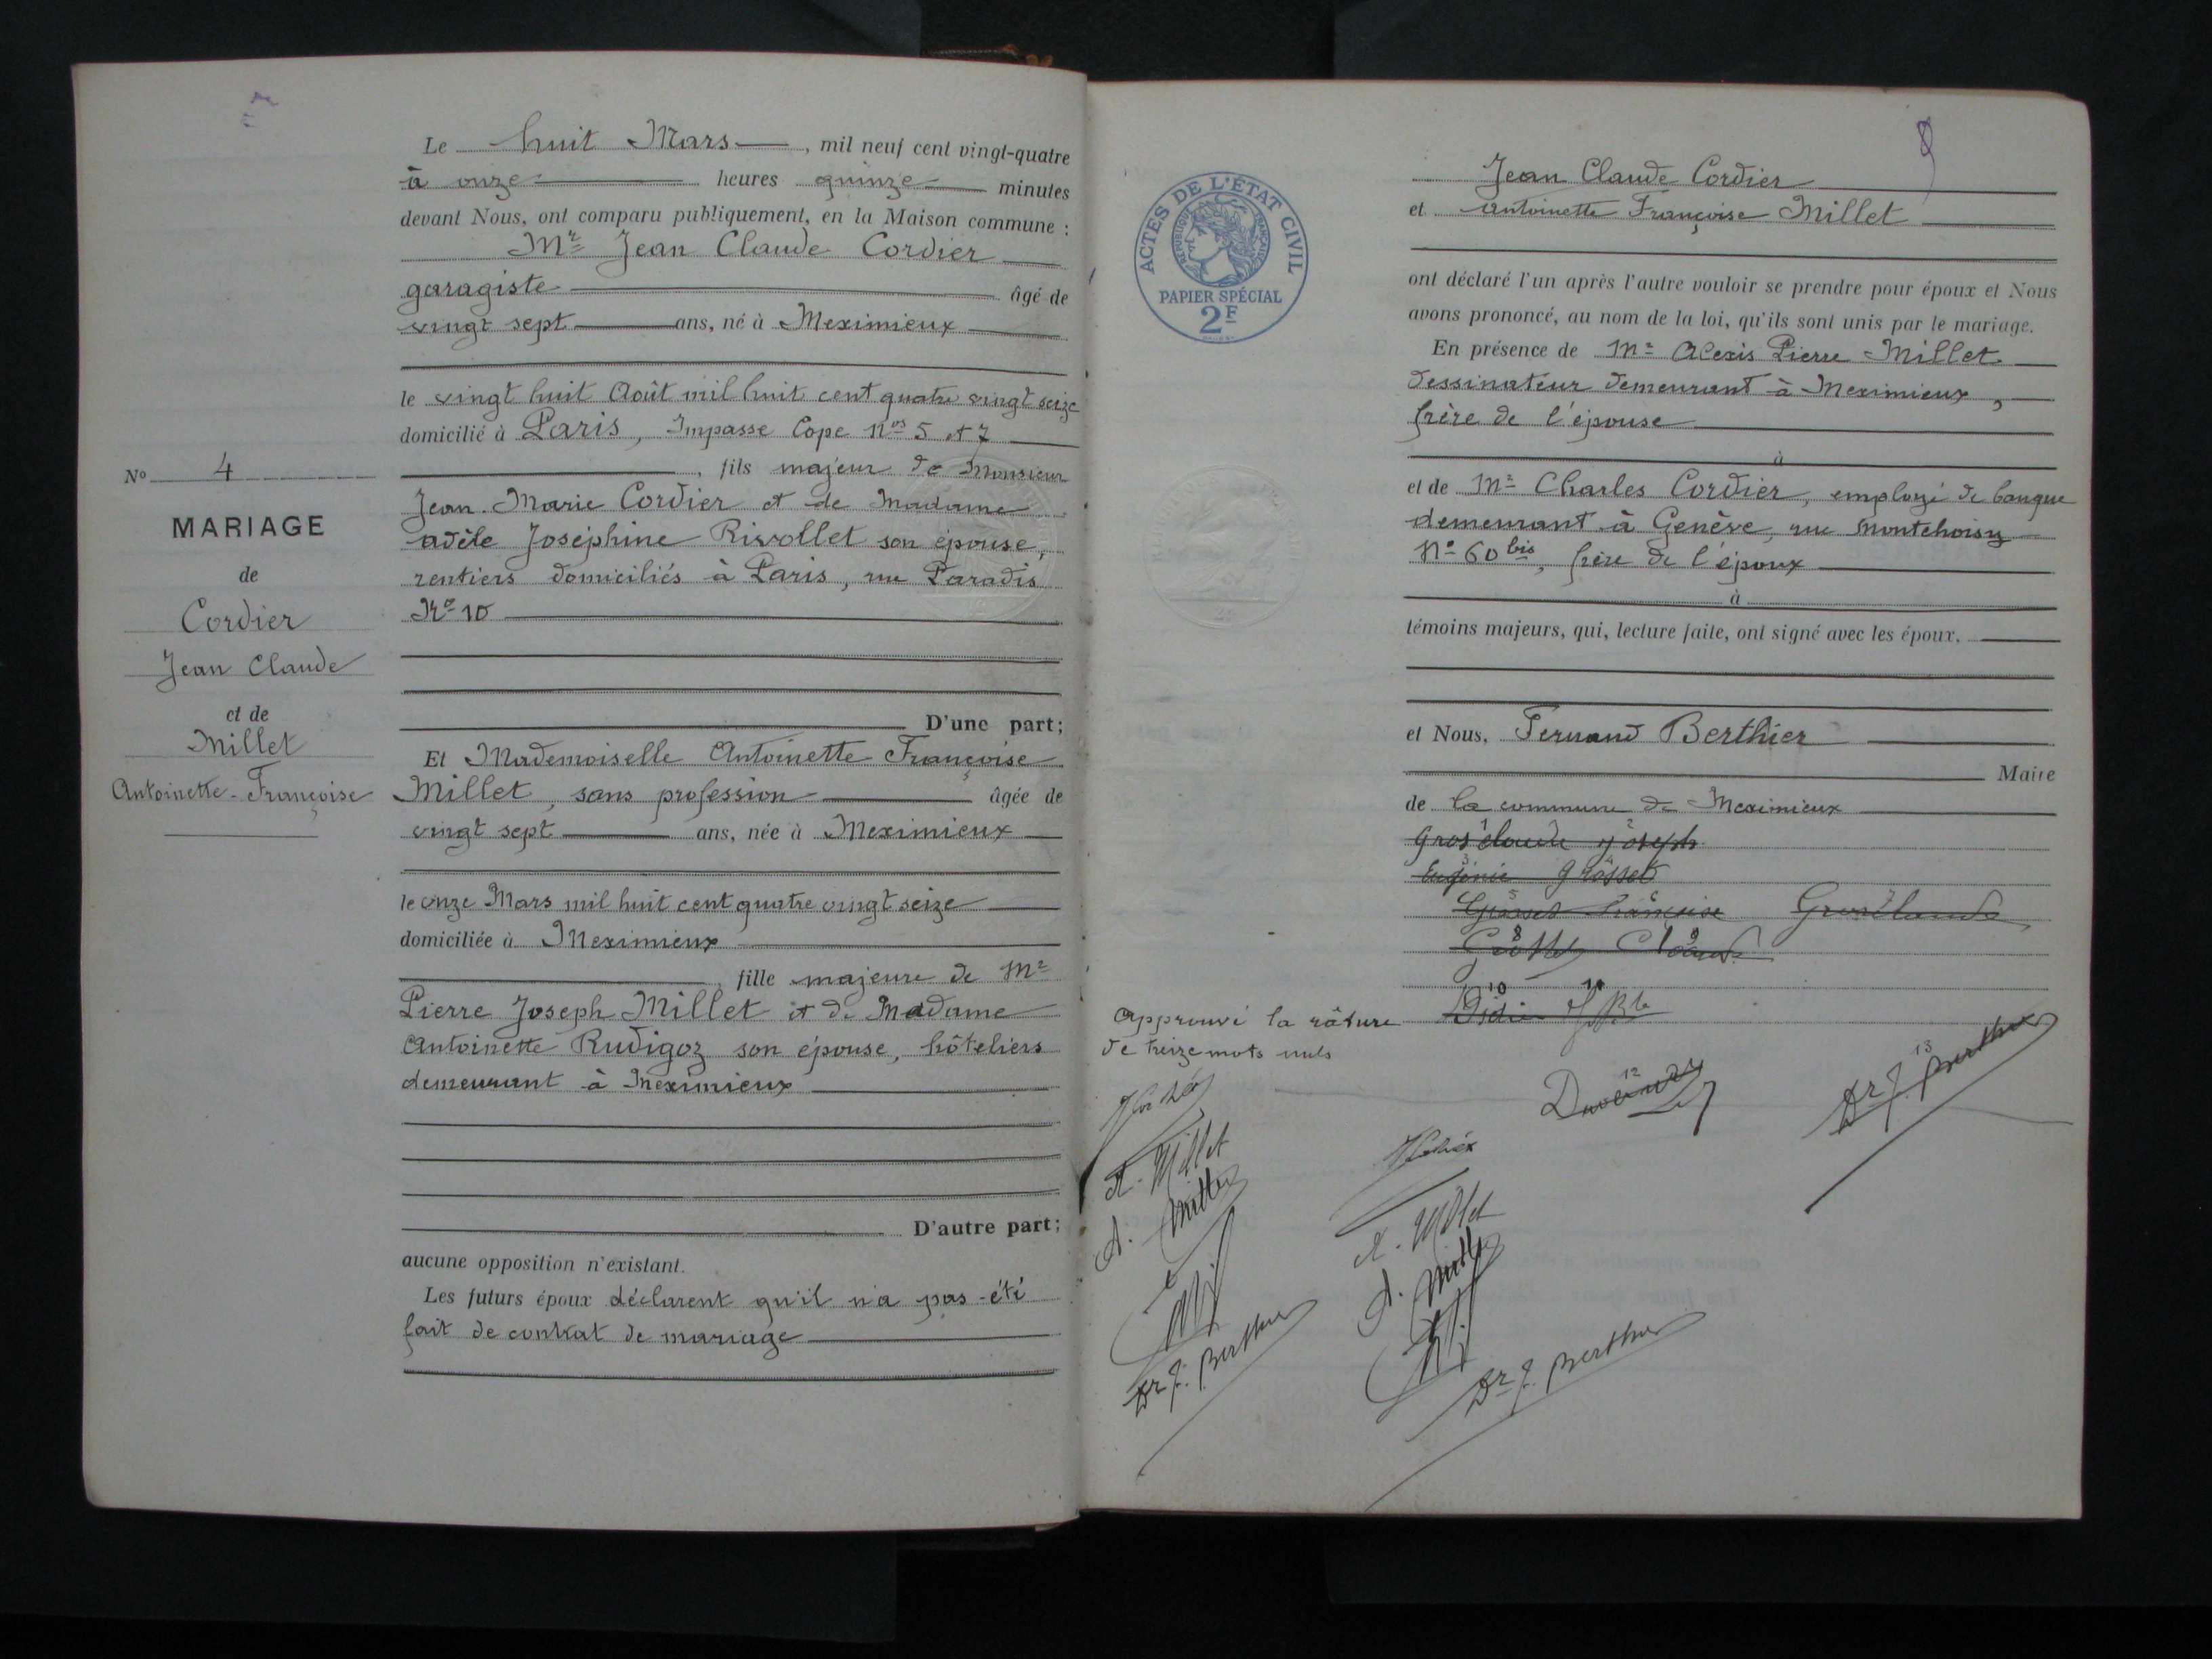 Le huit Mars, mil neuf cent vingt-quatre
à onze heures quinze minutes
devant Nous, ont comparu publiquement, en la Maison commune :
Mr Jean Claude Cordier
garagiste âgé de
vingt sept ans, né à Meximieux
le vingt huit Août mil huit cent quatre vingt seize
domicilié à Paris, Impasse Cope Nos 5 et 7
, fils majeur de Monsieur
Jean-Marie Cordier et de Madame
adèle Joséphine Rivollet son épouse,
rentiers domiciliés à Paris, rue Paradis
No 10
D'une part;
Et Mademoiselle Antoinette Françoise
Millet, sans profession âgée de
vingt sept ans, née à Meximieux
le onze Mars mil huit cent quatre vingt seize
domiciliée à Meximieux
, fille majeure de Mr
Pierre Joseph Millet et de Madame
Antoinette Rudigoz son épouse, hôteliers
demeurant à Meximieux
D'autre part;
aucune opposition n'existant.
Les futurs époux déclarent qu'il n'a pas été
fait de contrat de mariage
No 4
MARIAGE
de
Cordier
Jean Claude
et de
Millet
Antoinette-Françoise
ACTES DE L'ÉTAT CIVIL
RÉPUBLIQUE FRANÇAISE
PAPIER SPÉCIAL
2F
Jean Claude Cordier
et Antoinette Françoise Millet
ont déclaré l'un après l'autre vouloir se prendre pour époux et Nous
avons prononcé, au nom de la loi, qu'ils sont unis par le mariage.
En présence de Mr Alexis Pierre Millet
dessinateur demeurant à Meximieux,
frère de l'épouse
à
et de Mr Charles Cordier, employé de banque
demeurant à Genève, rue Montchoisy
No 60 bis, frère de l'époux
à
témoins majeurs, qui, lecture faite, ont signé avec les époux.
et Nous, Fernand Berthier
Maire
de la commune de Meximieux
Grosclaude Joseph
Eugénie Grosset
Grosset françoise Grosclaude
Claude
Didier
approuvé la râture
de treize mots nuls
Dr F. Berthier
A. Millet
A. Millet
A. Millet
A. Millet
Dr F. Berthier
Dr F. Berthier